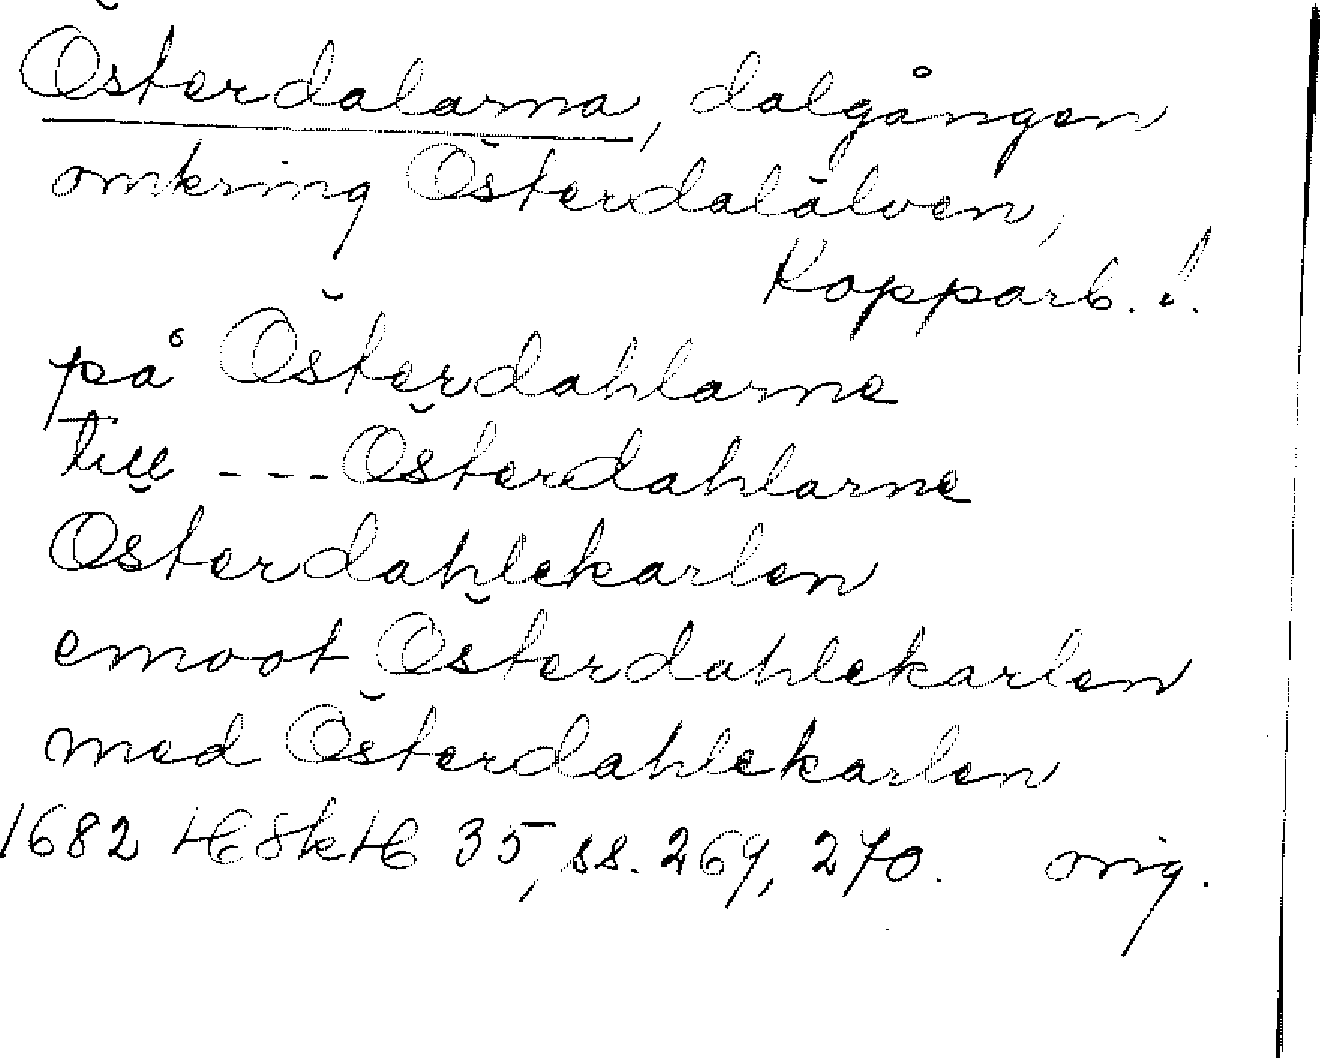 Österdalarna, dalgången
omkring Österdalälven,
Kopparb. l.
på Österdahlarne
till --- Österdahlarne
Österdahlekarlen
emoot Österdahlekarlen
med Österdahlekarlen
1682 HSkH 35, ss. 269, 270. orig.